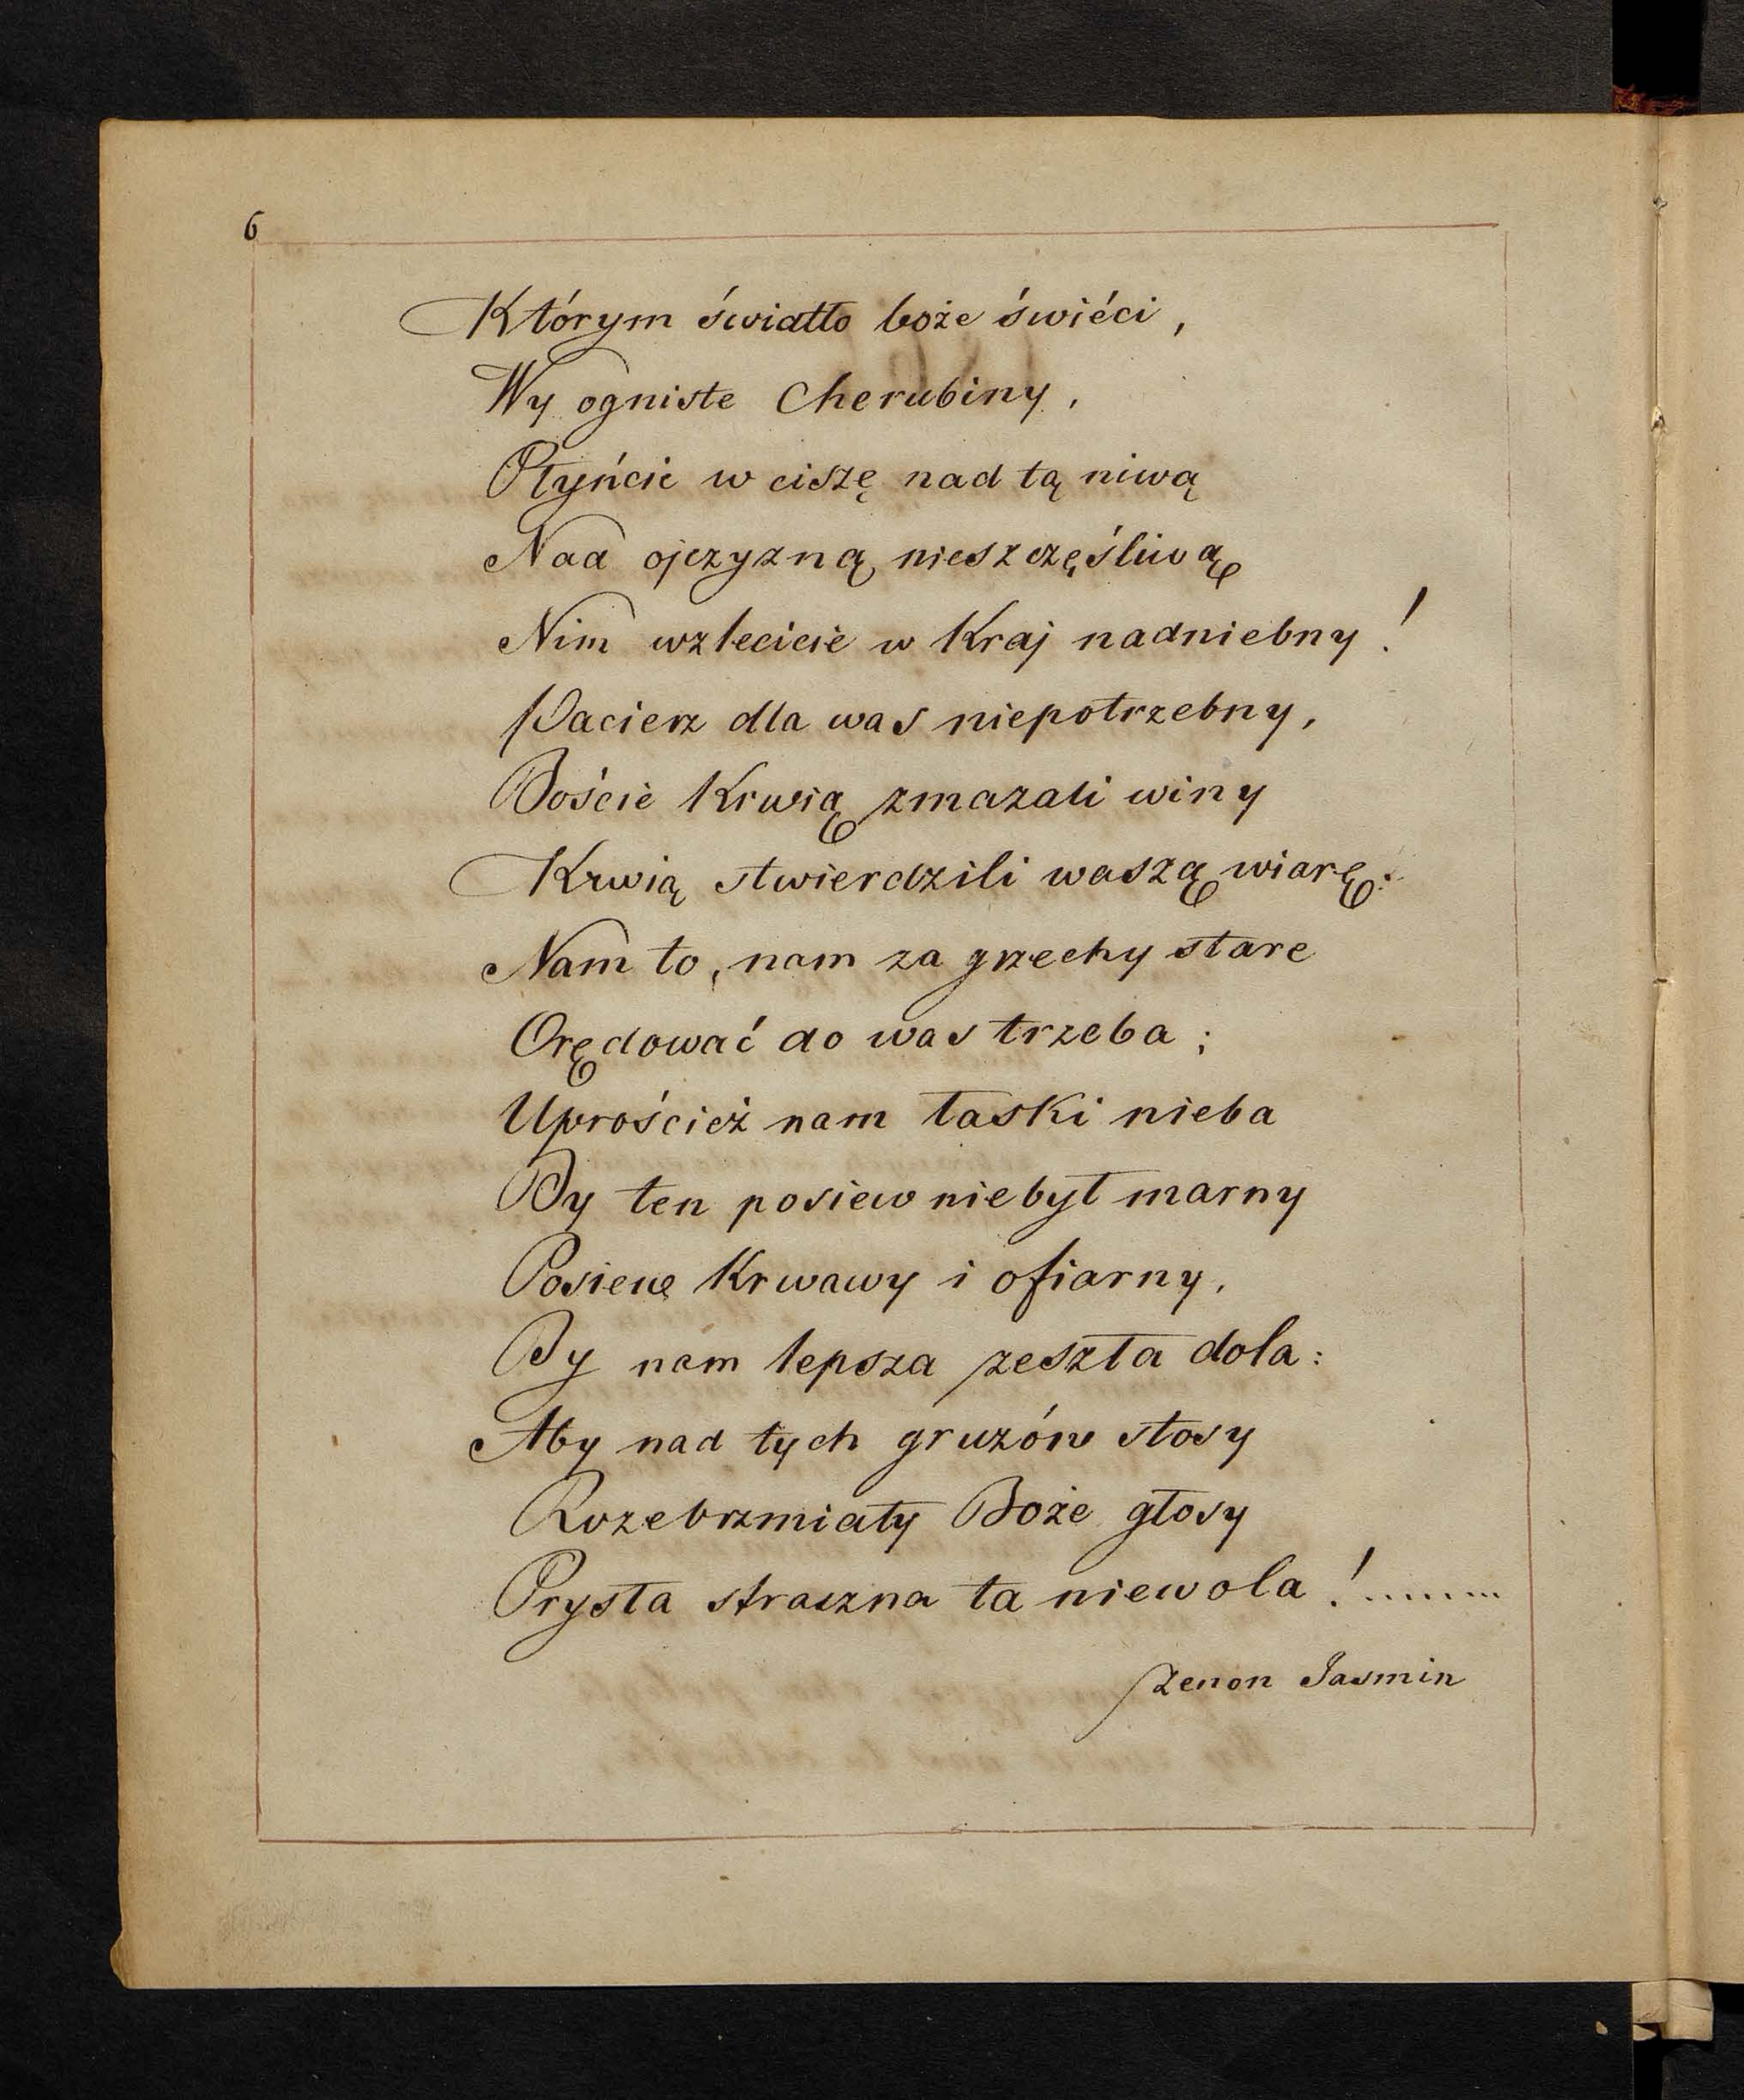 6
Którym światło boże świéci,
Wy ogniste Cherubiny,
Płyńcie w ciszę nad tą niwą
Nad ojczyzną nieszczęśliwą
Nim wzlecicie w Kraj nadniebny!
Pacierz dla was niepotrzebny,
Boście Krwią zmazali winy
Krwią stwierdzili waszą wiarę:
Nam to, nam za grzechy stare
Orędować do was trzeba;
Uproścież nam łaski nieba
By ten posiew niebył marny
Posiew Krwawy i ofiarny,
By nam lepsza zeszła dola:
Aby nad tych gruzów stosy
Rozebrzmiały Boże głosy
Prysła straszna ta niewola!.......
Zenon Jasmin